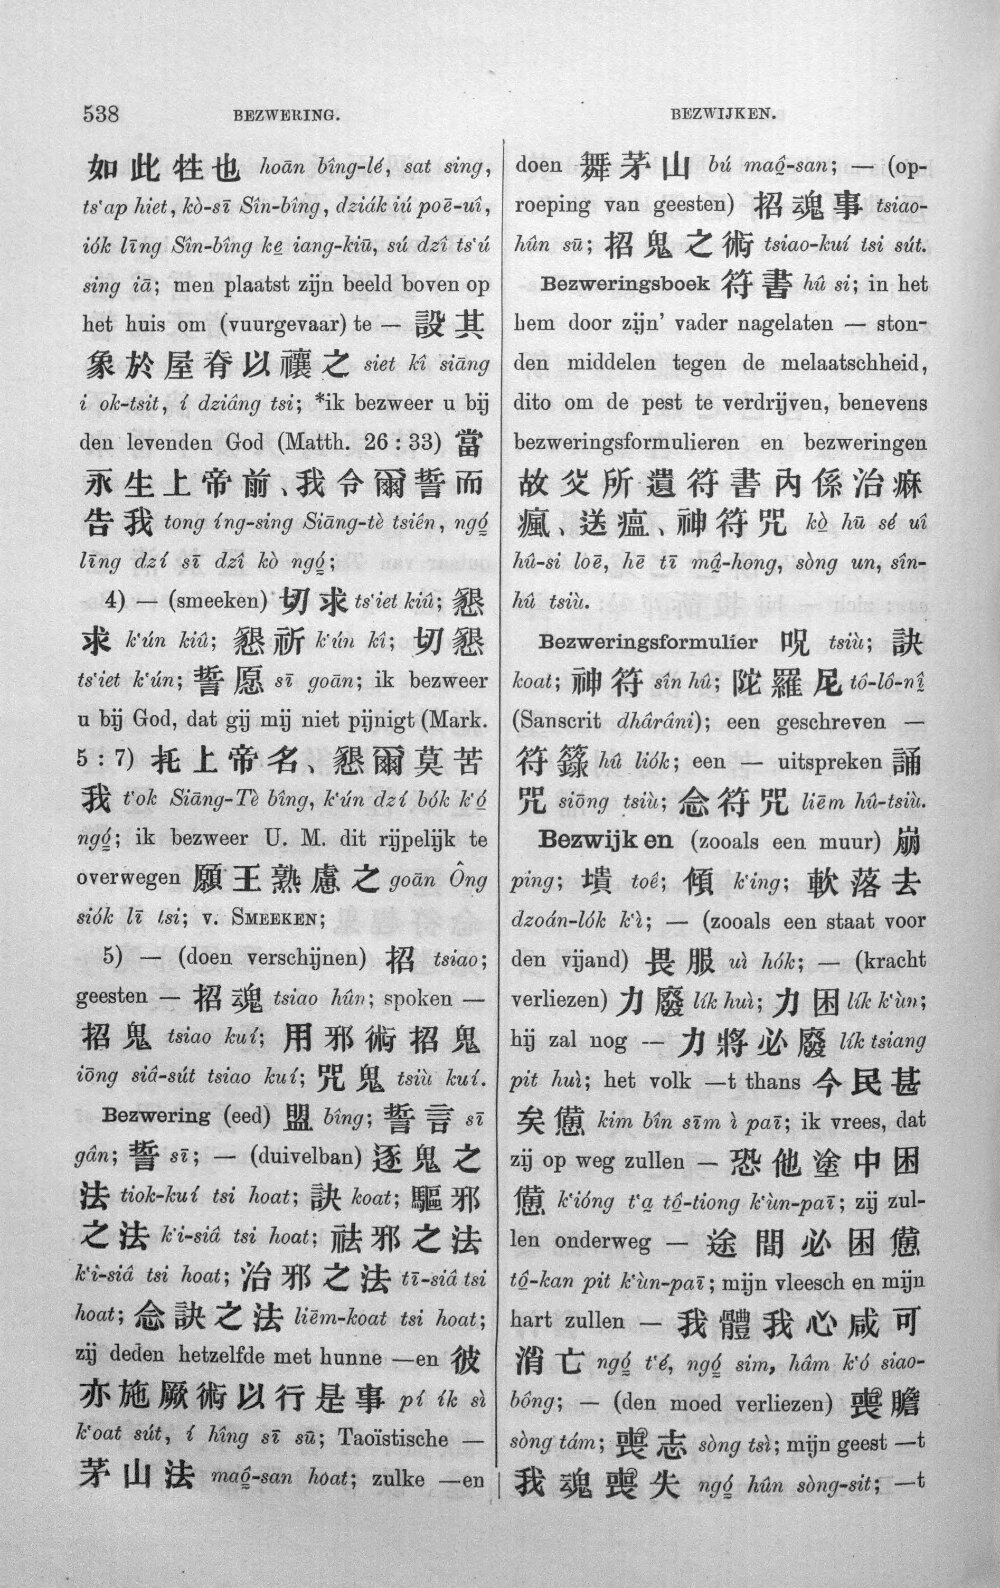 538
BEZWERING.
BEZWIJKEN.
如此牲也 hoān bîng-lé, sat sing,
ts‘ap hiet, kò-sī Sîn-bîng, dziák iú poē-uî,
iók līng Sîn-bîng ke̤ iang-kiū, sú dzî ts‘ú
sing iā; men plaatst zijn beeld boven op
het huis om (vuurgevaar) te — 設其
象於屋脊以禳之 siet kî siāng
i ok-tsit, í dziâng tsi; *ik bezweer u bij
den levenden God (Matth. 26 : 33) 當
永生上帝前、我令爾誓而
告我 tong íng-sing Siāng-tè tsiên, ngó̤
līng dzí sī dzî kò ngó̤;
4) — (smeeken) 切求 ts‘iet kiû; 懇
求 k‘ún kiû; 懇祈 k‘ún kî; 切懇
ts‘iet k‘ún; 誓愿 sī goān; ik bezweer
u bij God, dat gij mij niet pijnigt (Mark.
5 : 7) 托上帝名、懇爾莫苦
我 t‘ok Siāng-Tè bîng, k‘ún dzí bók k‘ó̤
ngó̤; ik bezweer U. M. dit rijpelijk te
overwegen 願王熟慮之 goān Ông
siók lī tsi; v. SMEEKEN;
5) — (doen verschijnen) 招 tsiao;
geesten — 招魂 tsiao hûn; spoken —
招鬼 tsiao kuí; 用邪術招鬼
iōng siâ-sút tsiao kuí; 咒鬼 tsiù kuí.
Bezwering (eed) 盟 bîng; 誓言 sī
gân; 誓 sī; — (duivelban) 逐鬼之
法 tiok-kuí tsi hoat; 訣 koat; 驅邪
之法 k‘i-siâ tsi hoat; 祛邪之法
k‘ì-siâ tsi hoat; 治邪之法 tī-siâ tsi
hoat; 念訣之法 liēm-koat tsi hoat;
zij deden hetzelfde met hunne —en 彼
亦施厥術以行是事 pí ík sì
k‘oat sút, í hîng sī sū; Taoïstische —
茅山法 maô̤-san hoat; zulke —en
doen 舞茅山 bú maô̤-san; — (op-
roeping van geesten) 招魂事 tsiao-
hûn sū; 招鬼之術 tsiao-kuí tsi sút.
Bezweringsboek 符書 hû si; in het
hem door zijn’ vader nagelaten — ston-
den middelen tegen de melaatschheid,
dito om de pest te verdrijven, benevens
bezweringsformulieren en bezweringen
故父所遺符書內係治痳
瘋、送瘟、神符咒 kò̤ hū sé uî
hû-si loē, hē tī mâ̤-hong, sòng un, sîn-
hû tsiù.
Bezweringsformulier 呪 tsiù; 訣
koat; 神符 sîn hû; 陀羅尼 tô-lô-nî̤
(Sanscrit dhârâni); een geschreven —
符籙 hû liók; een — uitspreken 誦
咒 siōng tsiù; 念符咒 liēm hû-tsiù.
Bezwijken (zooals een muur) 崩
ping; 墤 toê; 傾 k‘ing; 軟落去
dzoán-lók k‘ì; — (zooals een staat voor
den vijand) 畏服 uì hók; — (kracht
verliezen) 力廢 lík huì; 力困 lík k‘ùn;
hij zal nog — 力將必廢 lík tsiang
pit huì; het volk —t thans 今民甚
矣憊 kim bîn sīm ì paī; ik vrees, dat
zij op weg zullen — 恐他塗中困
憊 k‘ióng t‘a̤ tô̤-tiong k‘ùn-paī; zij zul-
len onderweg — 途間必困憊
tô̤-kan pit k‘ùn-paī; mijn vleesch en mijn
hart zullen — 我體我心咸可
消亡 ngó̤ t‘é, ngó̤ sim, hâm k‘ó siao-
bông; — (den moed verliezen) 喪膽
sòng tám; 喪志 sòng tsì; mijn geest —t
我魂喪失 ngó̤ hûn sòng-sit; —t